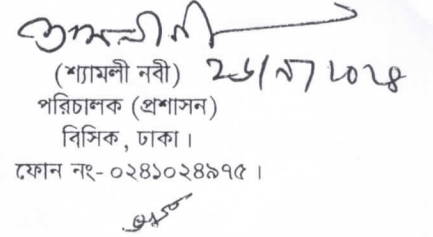 (শ্যামলী নবী)
পরিচালক (প্রশাসন)
বিসিক, ঢাকা।
ফোন নং- ০২৪১০২৪৯৭৫।